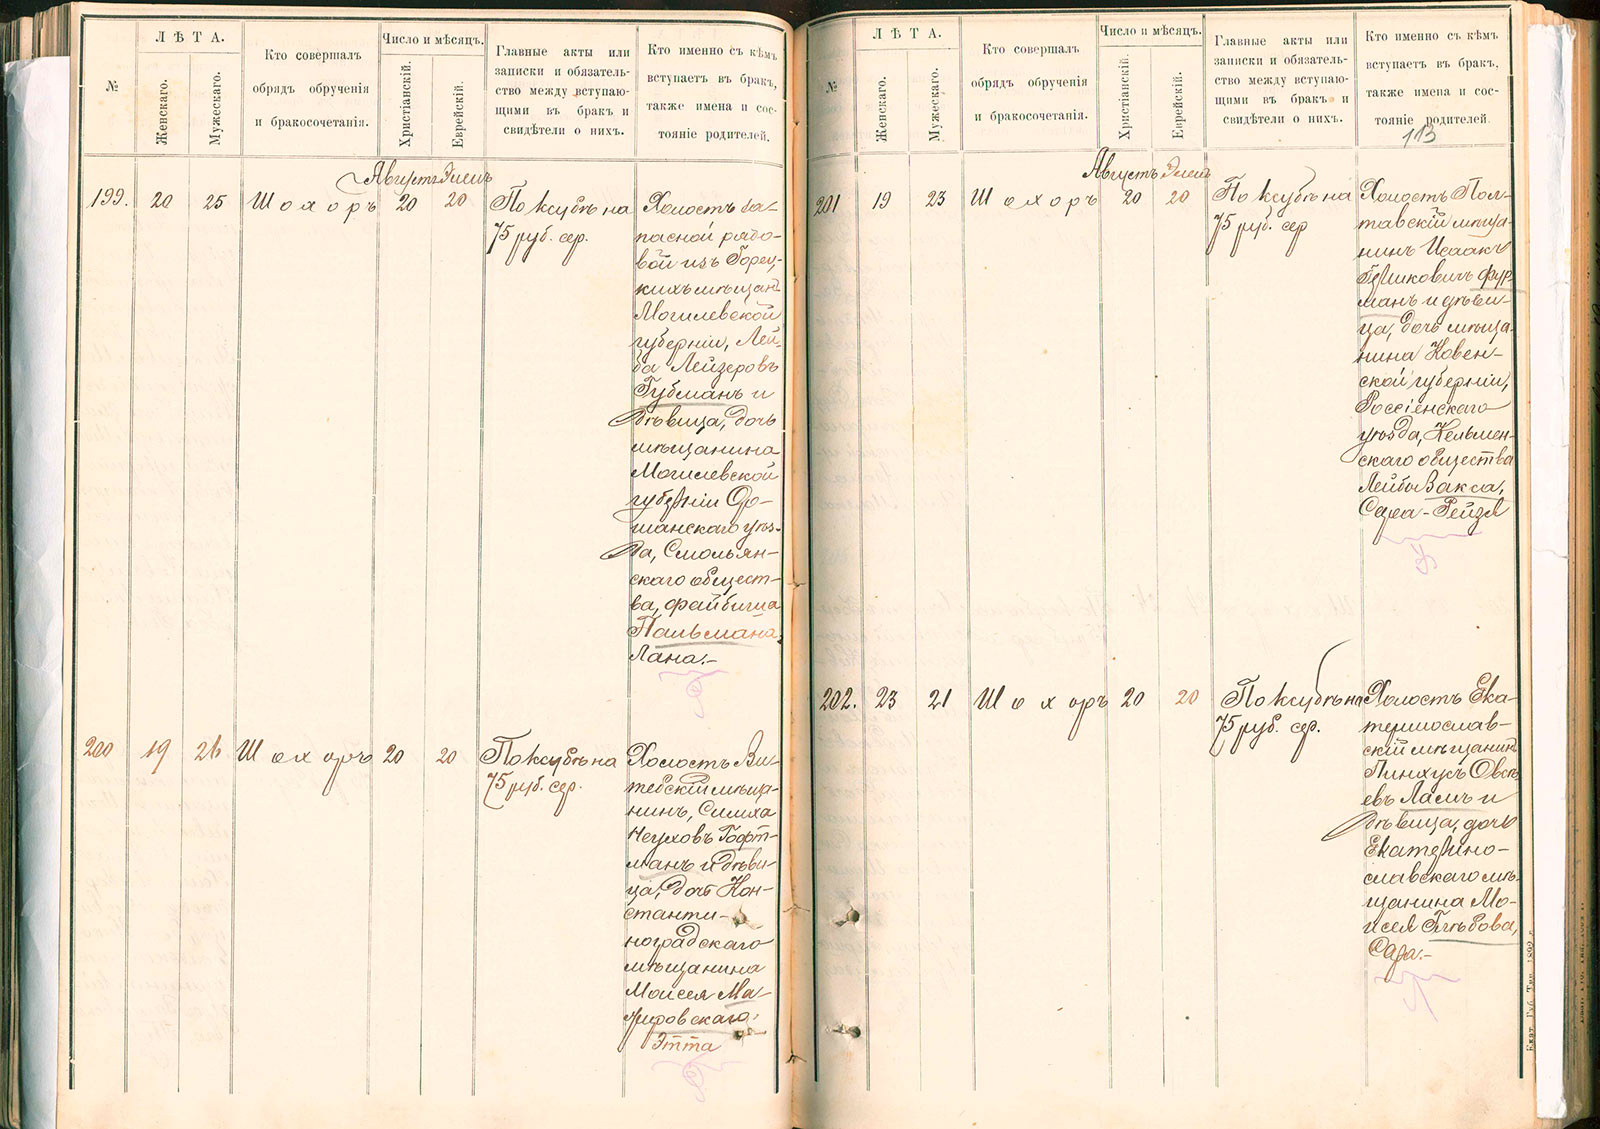 №
ЛѢТА.
Женскаго.
Мужескаго.
Кто совершалъ
обрядъ обрученія
и бракосочетанія.
Число и мѣсяцъ.
Христіанскій.
Еврейскій.
Главные акты или
записки и обязатель-
ство между вступаю-
щими въ бракъ и
свидѣтели о нихъ.
Кто именно съ кѣмъ
вступаетъ въ бракъ,
также имена и сос-
тояніе родителей.
Августъ Элелъ
199. 20 25 Шохоръ 20 20
По ксубѣ на
75 руб. сер.
Холостъ за-
пасной рядо-
вой изъ Горец-
кихъ мѣщан
Могилевской
губерніи, Лей-
ба Лейзеровъ
Губманъ и
дѣвица, дочь
мѣщанина
Могилевской
губерніи Ор-
шанскаго уѣз-
да, Смольян-
скаго общест-
ва, Файбиша
Пальмана
Лана.-
200 19 26 Шохоръ 20 20
По ксубѣ на
75 руб. сер.
Холостъ Ви-
тебскій мѣща-
нинъ, Симха
Неуховъ Гофт-
манъ и дѣви-
ца, дочь Кон-
станти-
ноградскаго
мѣщанина
Моисея Ма-
жировскаго.
Этта
№
ЛѢТА.
Женскаго.
Мужескаго.
Кто совершалъ
обрядъ обрученія
и бракосочетанія.
Число и мѣсяцъ.
Христіанскій.
Еврейскій.
Главные акты или
записки и обязатель-
ство между вступаю-
щими въ бракъ и
свидѣтели о нихъ.
Кто именно съ кѣмъ
вступаетъ въ бракъ,
также имена и сос-
тояніе родителей.
113
Августъ Элелъ
201 19 23 Шохоръ 20 20
По ксубѣ на
75 руб. сер
Холостъ Пол-
тавскій мѣща-
нинъ Исаакъ
Гершковичъ Фур-
манъ и дѣви-
ца, дочь мѣща-
нина Ковен-
ской губерніи,
Россіенскаго
уѣзда, Кельмен-
скаго общества
Лейбы Вакса,
Сара-Рейзя
202. 23 21 Шохоръ 20 20
По ксубѣ на
75 руб. сер.
Холостъ Ека-
теринослав-
скій мѣщанин
Пинхусъ Овсѣ-
евъ Ламъ и
дѣвица, дочь
Екатерино-
славскаго мѣ-
щанина Мо-
исея Глѣбова,
Сара.-
Екат. Губ. Тип. 1899 г.